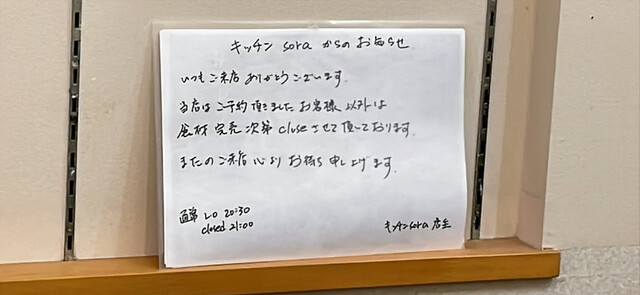 キッチン sora からの お知らせ
いつも ご来店 ありがとうございます.
当店は ご予約 頂きました お客様 以外は
食材 完売 次第 close させて 頂いております.
またのご来店 心より お待ち 申し上げます.
通常 LO 20:30
closed 21:00
キッチン sora 店主